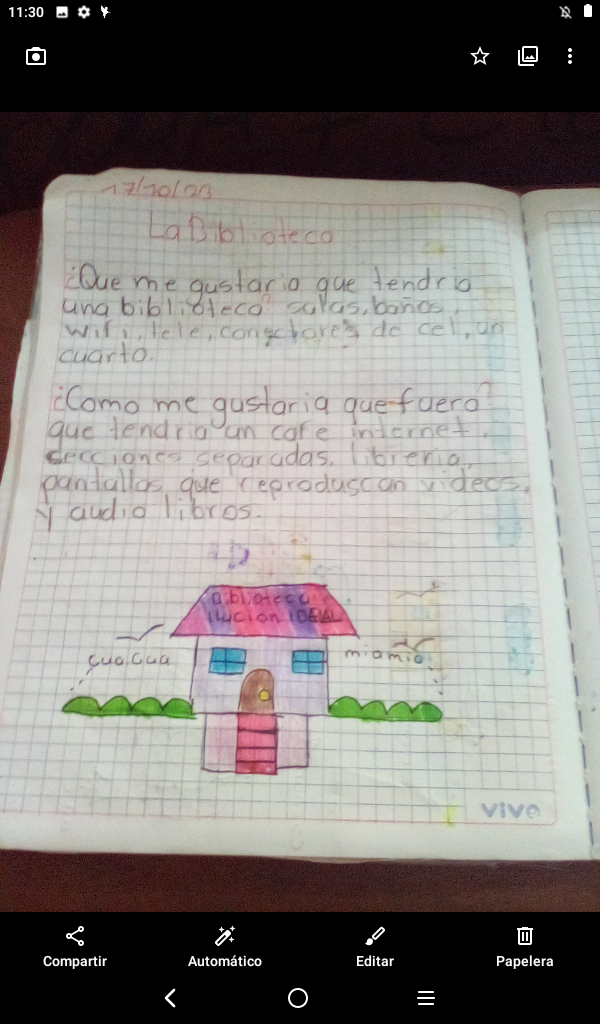 11:30
17/10/23
La Biblioteca
¿Que me gustaria que tendria
una biblioteca? salas, baños,
wifi, tele, conectores de cel, un
cuarto.
¿Como me gustaria que fuera?
que tendria un cafe internet,
secciones separadas, libreria,
pantallas que reproduscan videos,
y audio libros.
Biblioteca
ilucion IDEAL
cua,cua
miomio
vivo
Compartir
Automático
Editar
Papelera